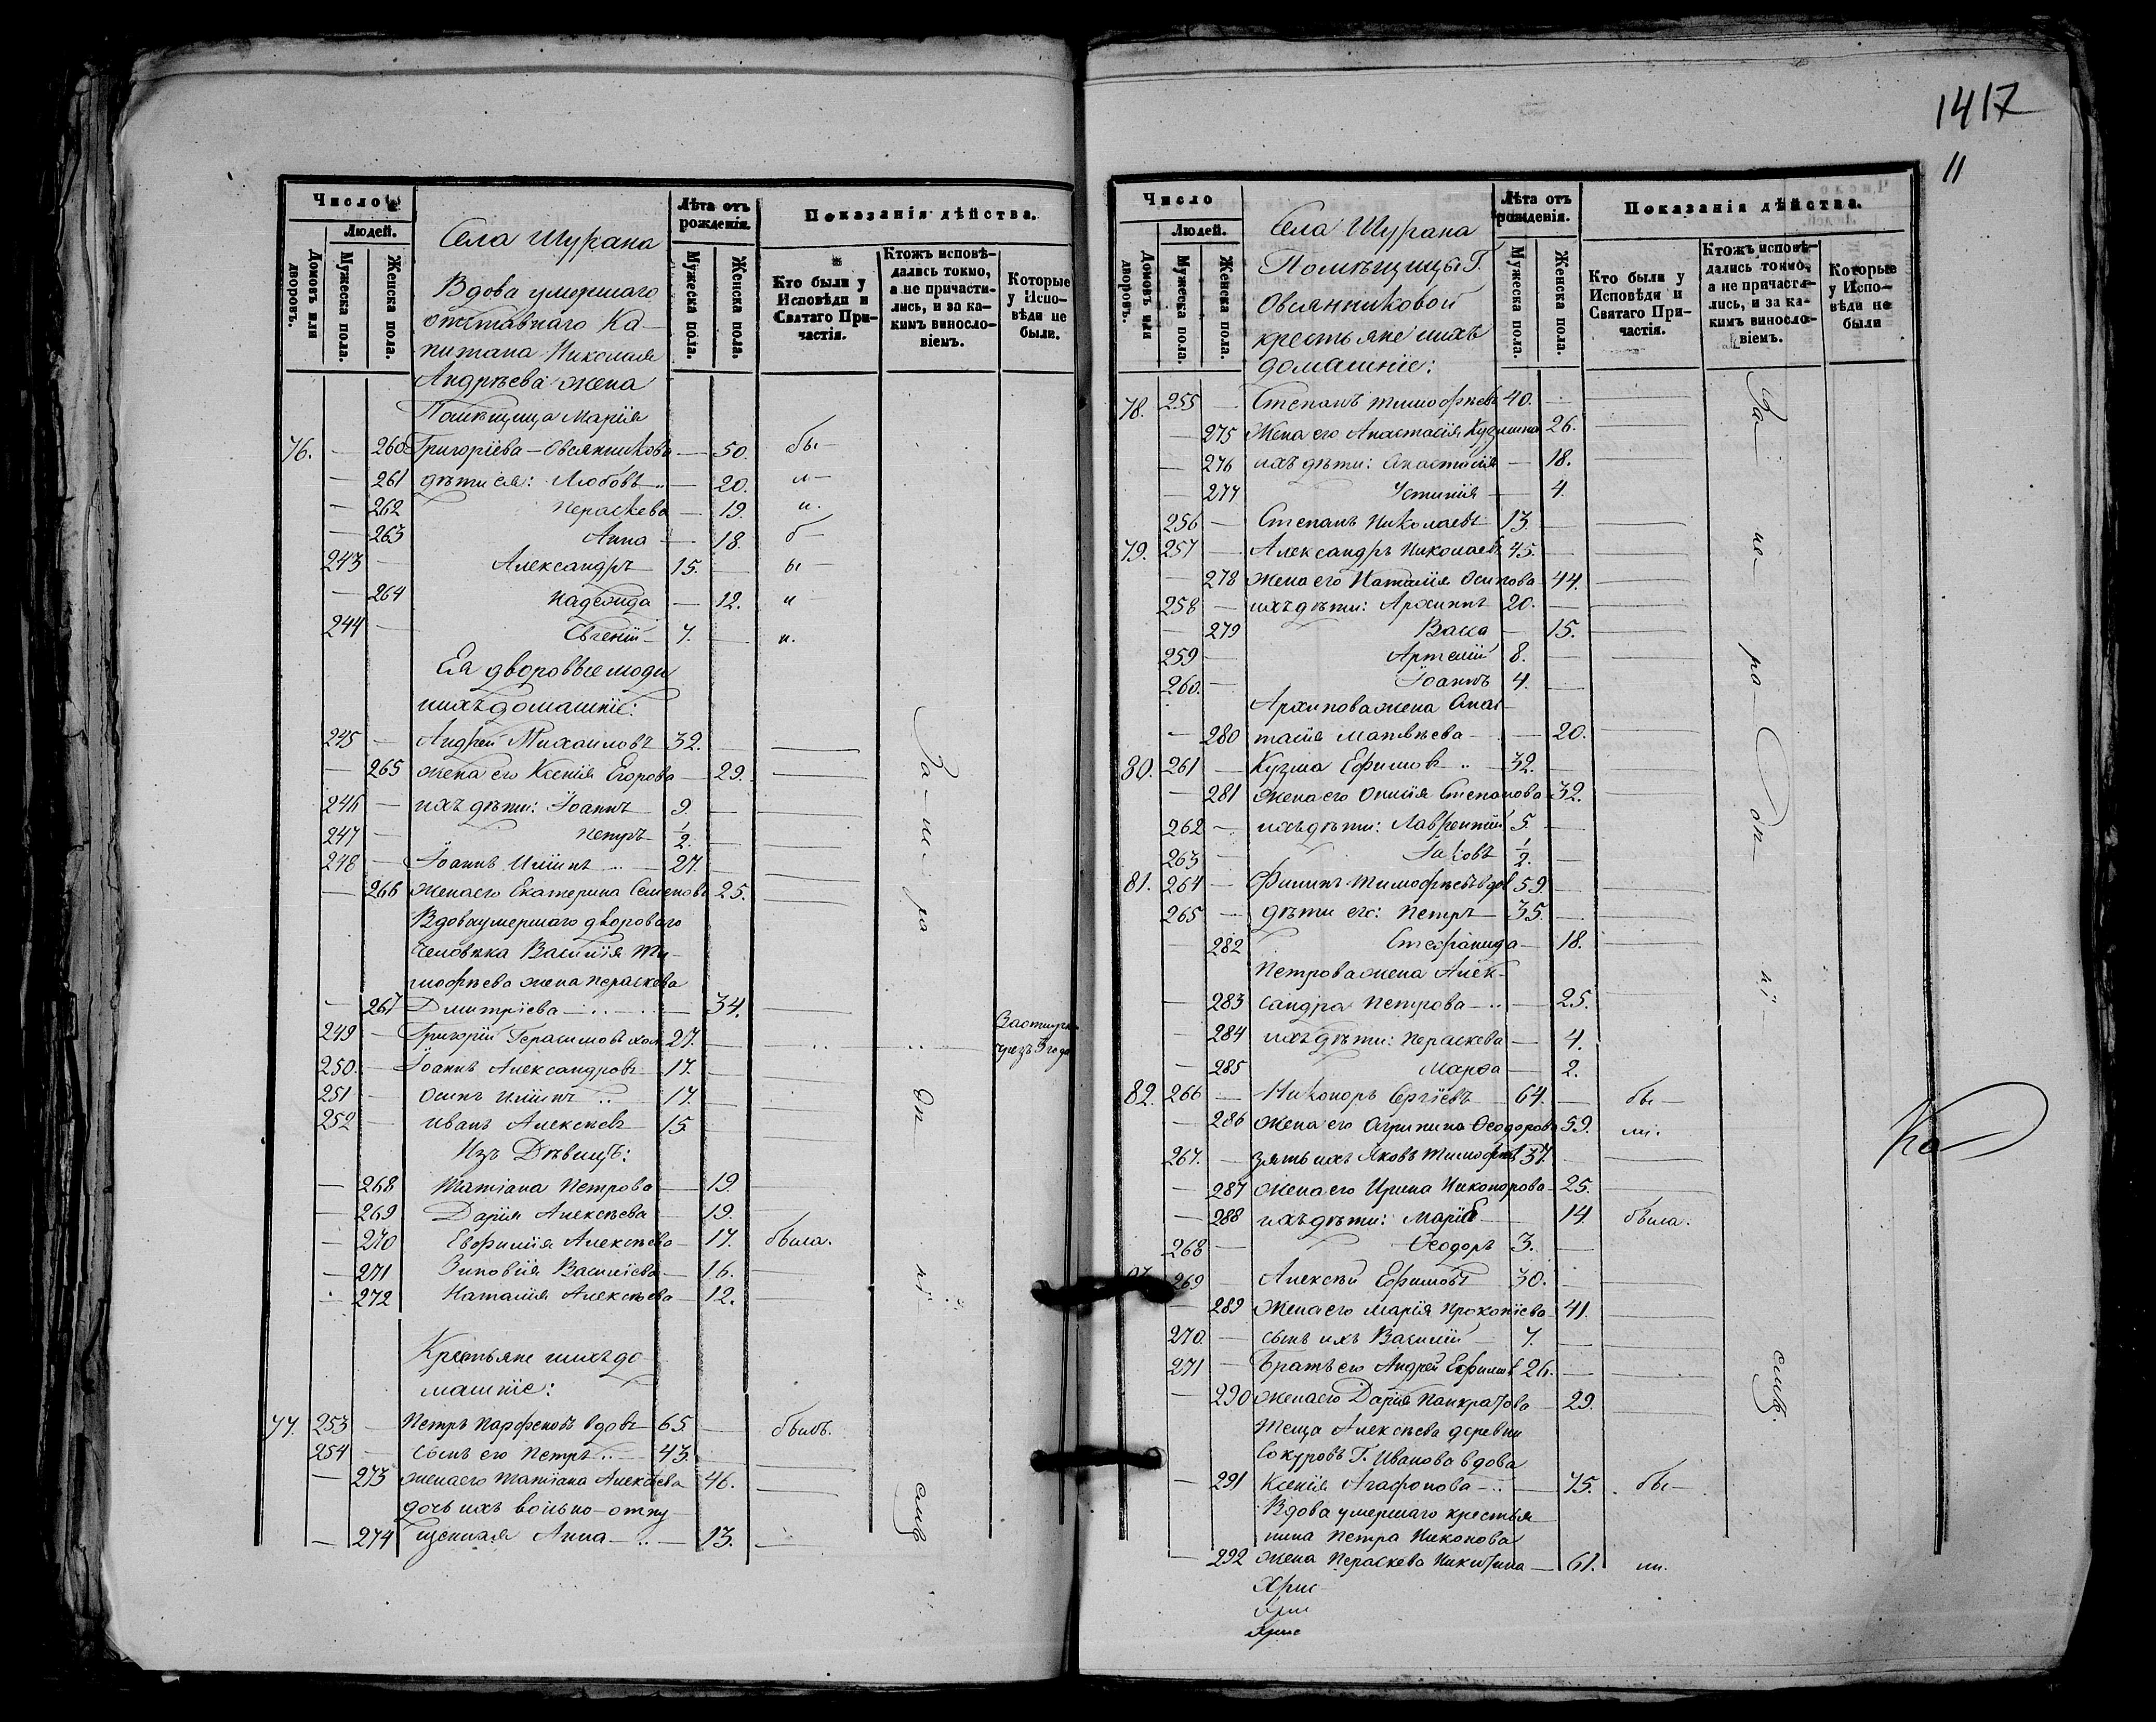 Число
Людей.
Домовъ или дворовъ.
Мужеска пола.
Женска пола.
Лѣта отъ рожденія.
Мужеска пола.
Женска пола.
Показанія дѣйства.
Кто были у Исповѣди и Святаго Причастія.
Ктожъ исповѣ-
дались токмо,
а не причасти-
лись, и за ка-
кимъ винosло-
віемъ.
Которые
у Испо-
вѣди не
были.
Села Шурана
Вдова умершаго
отставнаго Ка-
питана Николая
Андрѣева жена
Помѣщица Марія
76. — 260 Григоріева — Овсянникова — 50. бы
— 261 дѣти ея: Любовь — 20. л—
— 262 Пераскева — 19. и.
— 263 Анна — 18. б—
243 — Александръ 15. — ы—
— 264 Надежда — 12. и
244 — Евгеній 7. — и.
Ея дворовые люди
и ихъ домашніе:
245 — Андрей Михаиловъ 32. —
— 265 жена его Ксенія Егорова — 29.
246 — ихъ дѣти: Іоаннъ 9. —
247 — Петръ 1/2. —
248 — Іоаннъ Ильинъ 27. —
— 266 жена его Екатерина Семенова 25.
Вдова умершаго двороваго
Человѣка Василія Ти-
мофѣева жена Пераскева
— 267 Дмитріева — 34.
249 — Григорій Герасимовъ хол. 27. —
250. — Іоаннъ Александровъ 17. —
251 — Осипъ Ильинъ 17. —
252 — Иванъ Алексѣевъ 15. —
Изъ Дѣвицъ:
— 268 Татіана Петрова — 19.
— 269 Дарія Алексѣева — 19.
— 270 Евфимія Алексѣева — 17. была.
— 271 Зиновія Василіева — 16.
— 272 Наталія Алексѣева — 12.
Крестьяне и ихъ до-
машніе:
77. 253 — Петръ Парфеновъ вдовъ 65. — былъ.
254 — сынъ его Петръ 43. —
— 273 жена его Татіана Алексѣева 46.
дочь ихъ вольно-отпу-
— 274 щенная Анна — 13. —
За не ра
1417
11
Число
Людей.
Домовъ или дворовъ.
Мужеска пола.
Женска пола.
Лѣта отъ рожденія.
Мужеска пола.
Женска пола.
Показанія дѣйства.
Кто были у Исповѣди и Святаго Причастія.
Ктожъ исповѣ-
дались токмо,
а не причасти-
лись, и за ка-
кимъ винosло-
віемъ.
Которые
у Испо-
вѣди не
были
Села Шурана
Помѣщицы Г.
Овсянниковой
крестьяне и ихъ
домашніе:
78. 255 — Степанъ Тимофѣевъ 40. —
— 275 Жена его Анастасія Кузмина 26.
— 276 ихъ дѣти: Анастасія — 18.
— 277 Устинія — 4.
256 — Степанъ Николаевъ 13 —
79. 257 — Александръ Николаевъ 45. —
— 278 жена его Наталія Осипова 44.
258 — ихъ дѣти: Архипъ 20. —
— 279 Васса — 15.
259 — Артемій 8. —
260. — Іоаннъ 4. —
Архипова жена Анас-
— 280 тасія Матвѣева — 20.
80. 261 — Кузма Ефимовъ 32. —
— 281 Жена его Степанова 32.
262 — ихъ дѣти: Лаврентій 5. —
263 — Іаковъ 1/2. —
81. 264 — Филипъ Тимофѣевъ вдов 59. —
265 — дѣти его: Петръ 35. —
— 282 Стефанида — 18.
Петрова жена Алек-
— 283 сандра Петрова — 25.
— 284 ихъ дѣти: Пераскева — 4.
— 285 Марѳа — 2.
82. 266 — Никоноръ Сергіевъ 64. — бы—
— 286 Жена его Агрипина Ѳеодорова 59. ли.
267. — зять ихъ Яковъ Тимофѣевъ 37.
— 287 жена его Ирина Никонорова 25.
— 288 ихъ дѣти: Марія — 14. была.
268 — Ѳеодоръ 3. —
269 — Алексѣй Ефимовъ 30. —
— 289 Жена его Марія Прокопіева 41.
270. — сынъ ихъ Василій 7. —
271 — Братъ его Андрей Ефимовъ 26. —
— 290 Жена его Дарія Панкратова 29.
Теща Алексѣева деревни
Сокуровъ Г. Иванова вдова
— 291 Ксенія Агафонова — 75. бы—
Вдова умершаго крестья-
нина Петра Никонова
— 292 жена Пераскева Никитина — 61. ли.
Хрис
Хрис
За не ра
Ко